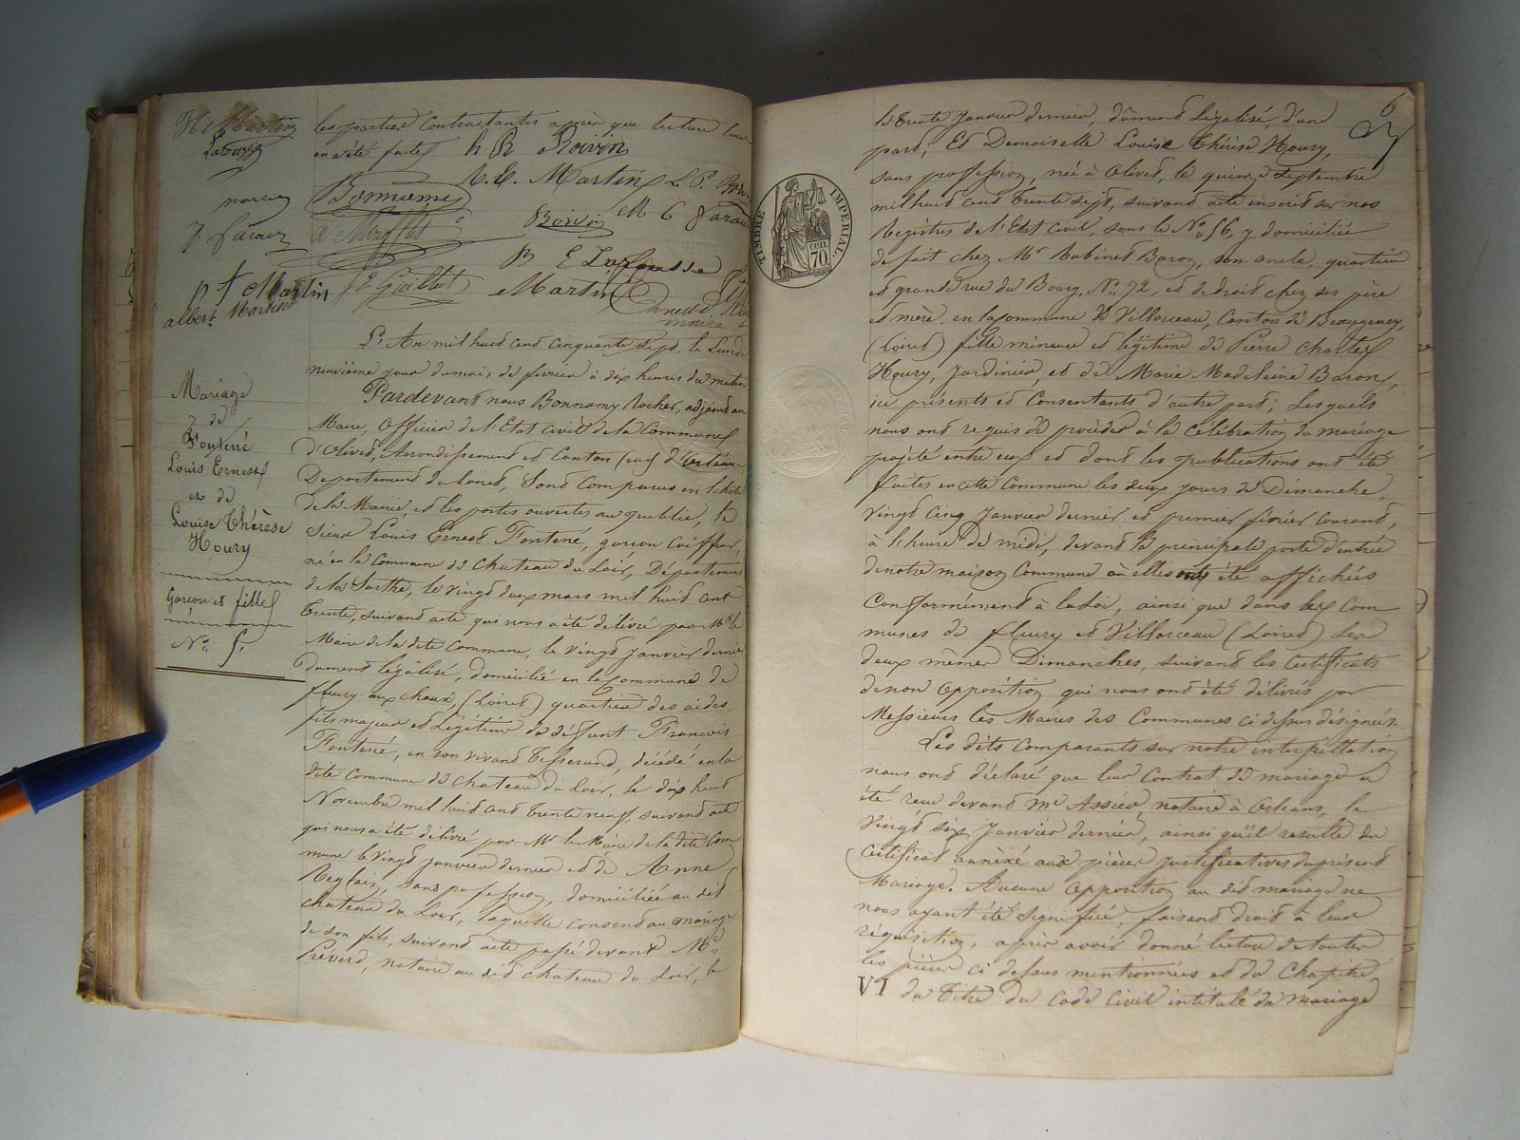 les parties Contractantes après que lecture leur
en a été faite
h R Boivin
L. C. Martin L P.
Bonnamy
Boivin
M C
B E Lafousse
E Guillot
Martin
p f Martin
albert Martin
maire
Mariage
de
Fonténé
Louis Ernest
et de
Louise Thérèse
Houry
Garçon et fille
No. 5.
L'An mil huit cent cinquante sept, le Lundi
neuvième jour du mois de février à dix heures du matin
Pardevant nous Bonnamy Rocher, adjoint au
Maire, Officier de l'Etat Civil de la Commune
d'Olivet, Arrondissement et Canton (sud) d'Orléans
Département du Loiret, Sont Comparus en l'hôtel
de la Mairie, et les portes ouvertes au publique, le
Sieur Louis Ernest Fontené, garçon Coiffeur,
né en la Commune de Chateau du Loir, Département
de la Sarthe, le vingt deux mars mil huit cent
trente, suivant acte qui nous a été délivré par Mr le
Maire de la dite Commune, le vingt janvier dernier
dument légalisé, domicilié en la Commune de
fleury aux choux, (Loiret) quartier des aides
fils majeur et Légitime de défunt François
Fontené, en son vivant tisserand, décédé en la
dite Commune de Chateau du Loir, le dix huit
Novembre mil huit cent trente neuf, suivant acte
qui nous a été délivré par Mr le Maire de la dite Com
mune le vingt janvier dernier et de Anne
sans profession, domiciliée au dit
chateau du Loir, laquelle consent au mariage
de son fils, suivant acte passé devant Me
Prévert, notaire au dit chateau du Loir, le
6
TIMBRE IMPÉRIAL
70
le trente janvier dernier, dûment légalisé, d'une
part; Et Demoiselle Louise Thérèse Houry,
sans profession, née à Olivet, le quinze septembre
mil huit cent trente sept, suivant acte inscrit sur nos
Registres de l'Etat Civil, sous le No. 56, y domiciliée
de fait chez Mr Babinet Baron, son oncle, quartier
et grande rue du Bourg, No. 72, et de droit chez ses père
et mère, en la commune de Villorceau, Canton de Beaugency,
(Loiret) fille mineure et légitime de Pierre Charles
Houry, Jardinier, et de Marie Madeleine Baron,
ici présents et Consentants d'autre part; Lesquels
nous ont requis de procéder à la célébration du mariage
projeté entre eux et dont les publications ont été
faites en cette Commune les deux jours de Dimanche,
vingt cinq Janvier dernier et premier février courant,
à l'heure de midi, devant la principale porte d'entrée
de notre maison Commune où elles ont été affichées
Conformément à la Loi, ainsi que dans les Com
munes de fleury et Villorceau (Loiret) les
deux mêmes Dimanches, suivant les Certificats
de non opposition qui nous ont été délivrés par
Messieurs les Maires des Communes ci dessus désignées.
Les dits comparants sur notre interpellation
nous ont déclaré que leur Contrat de mariage a
été reçu devant Me Assier, notaire à Orléans, le
Vingt six Janvier dernier, ainsi qu'il resulte du
Certificat annéxé aux pièces justificatives du présent
Mariage. Aucune opposition au dit mariage ne
nous ayant été signifiée, faisant droit à leur
réquisition, après avoir donné lecture de toutes
les pièces ci dessus mentionnées et du Chapitre
VI du Titre du Code Civil intitulé du mariage